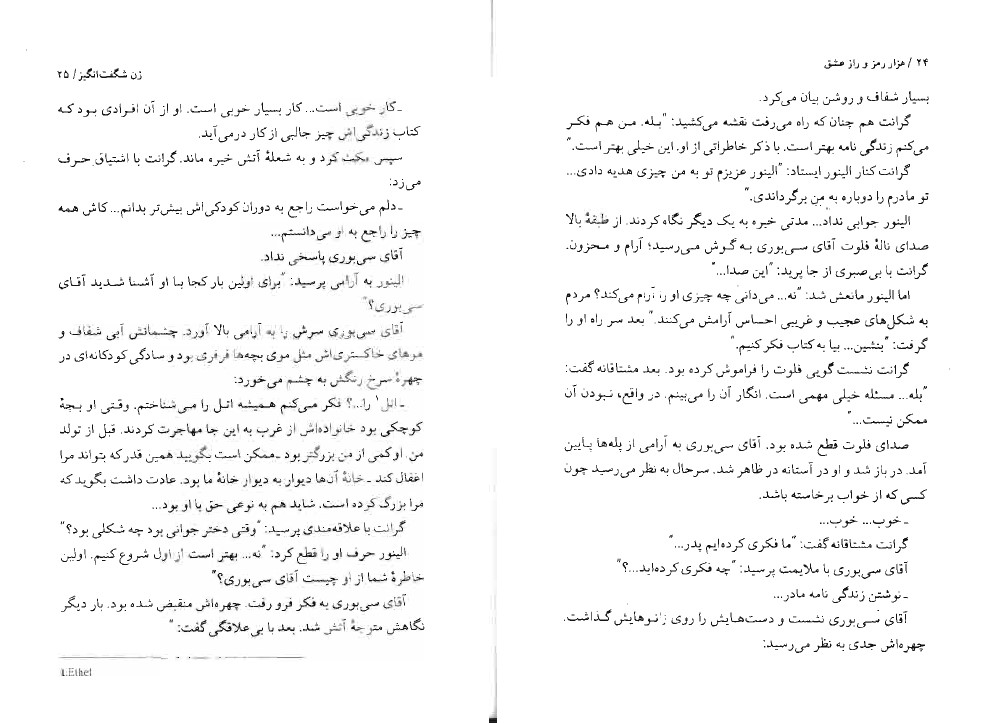 ۲۴ / هزار رمز و راز عشق
بسیار شفاف و روشن بیان می‌کرد.
گرانت هم چنان که راه می‌رفت نقشه می‌کشید: "بله. من هم فکر
می‌کنم زندگی نامه بهتر است. با ذکر خاطراتی از او. این خیلی بهتر است."
گرانت کنار الینور ایستاد: "الینور عزیزم تو به من چیزی هدیه دادی...
تو مادرم را دوباره به من برگرداندی."
الینور جوابی نداد... مدتی خیره به یک دیگر نگاه کردند. از طبقهٔ بالا
صدای نالهٔ فلوت آقای سی‌بوری به گوش می‌رسید؛ آرام و محزون.
گرانت با بی‌صبری از جا پرید: "این صدا..."
اما الینور مانعش شد: "نه... می‌دانی چه چیزی او را آرام می‌کند؟ مردم
به شکل‌های عجیب و غریبی احساس آرامش می‌کنند." بعد سر راه او را
گرفت: "بنشین... بیا به کتاب فکر کنیم."
گرانت نشست گویی فلوت را فراموش کرده بود. بعد مشتاقانه گفت:
"بله... مسئله خیلی مهمی است. انگار آن را می‌بینم. در واقع، نبودن آن
ممکن نیست..."
صدای فلوت قطع شده بود. آقای سی‌بوری به آرامی از پله‌ها پایین
آمد. در باز شد و او در آستانه در ظاهر شد. سرحال به نظر می‌رسید چون
کسی که از خواب برخاسته باشد.
ـ خوب... خوب...
گرانت مشتاقانه گفت: "ما فکری کرده‌ایم پدر..."
آقای سی‌بوری با ملایمت پرسید: "چه فکری کرده‌اید...؟"
ـ نوشتن زندگی نامه مادر...
آقای سی‌بوری نشست و دست‌هایش را روی زانوهایش گذاشت.
چهره‌اش جدی به نظر می‌رسید:
زن شگفت‌انگیز / ۲۵
ـ کار خوبی است... کار بسیار خوبی است. او از آن افرادی بود که
کتاب زندگی‌اش چیز جالبی از کار درمی‌آید.
سپس مکث کرد و به شعلهٔ آتش خیره ماند. گرانت با اشتیاق حرف
می‌زد:
ـ دلم می‌خواست راجع به دوران کودکی‌اش بیش‌تر بدانم... کاش همه
چیز را راجع به او می‌دانستم...
آقای سی‌بوری پاسخی نداد.
الینور به آرامی پرسید: "برای اولین بار کجا با او آشنا شدید آقای
سی‌بوری؟"
آقای سی‌بوری سرش را به آرامی بالا آورد. چشمانش آبی شفاف و
موهای خاکستری‌اش مثل موی بچه‌ها فرفری بود و سادگی کودکانه‌ای در
چهره سرخ رنگش به چشم می‌خورد:
ـ اتل¹ را...؟ فکر می‌کنم همیشه اتل را می‌شناختم. وقتی او بچهٔ
کوچکی بود خانواده‌اش از غرب به این جا مهاجرت کردند. قبل از تولد
من. او کمی از من بزرگتر بود ـ ممکن است بگویید همین قدر که بتواند مرا
اغفال کند ـ خانهٔ آن‌ها دیوار به دیوار خانهٔ ما بود. عادت داشت بگوید که
مرا بزرگ کرده است. شاید هم به نوعی حق با او بود...
گرانت با علاقه‌مندی پرسید: "وقتی دختر جوانی بود چه شکلی بود؟"
الینور حرف او را قطع کرد: "نه... بهتر است از اول شروع کنیم. اولین
خاطرهٔ شما از او چیست آقای سی‌بوری؟"
آقای سی‌بوری به فکر فرو رفت. چهره‌اش منقبض شده بود. بار دیگر
نگاهش متوجهٔ آتش شد. بعد با بی‌علاقگی گفت: "
1.Ethel